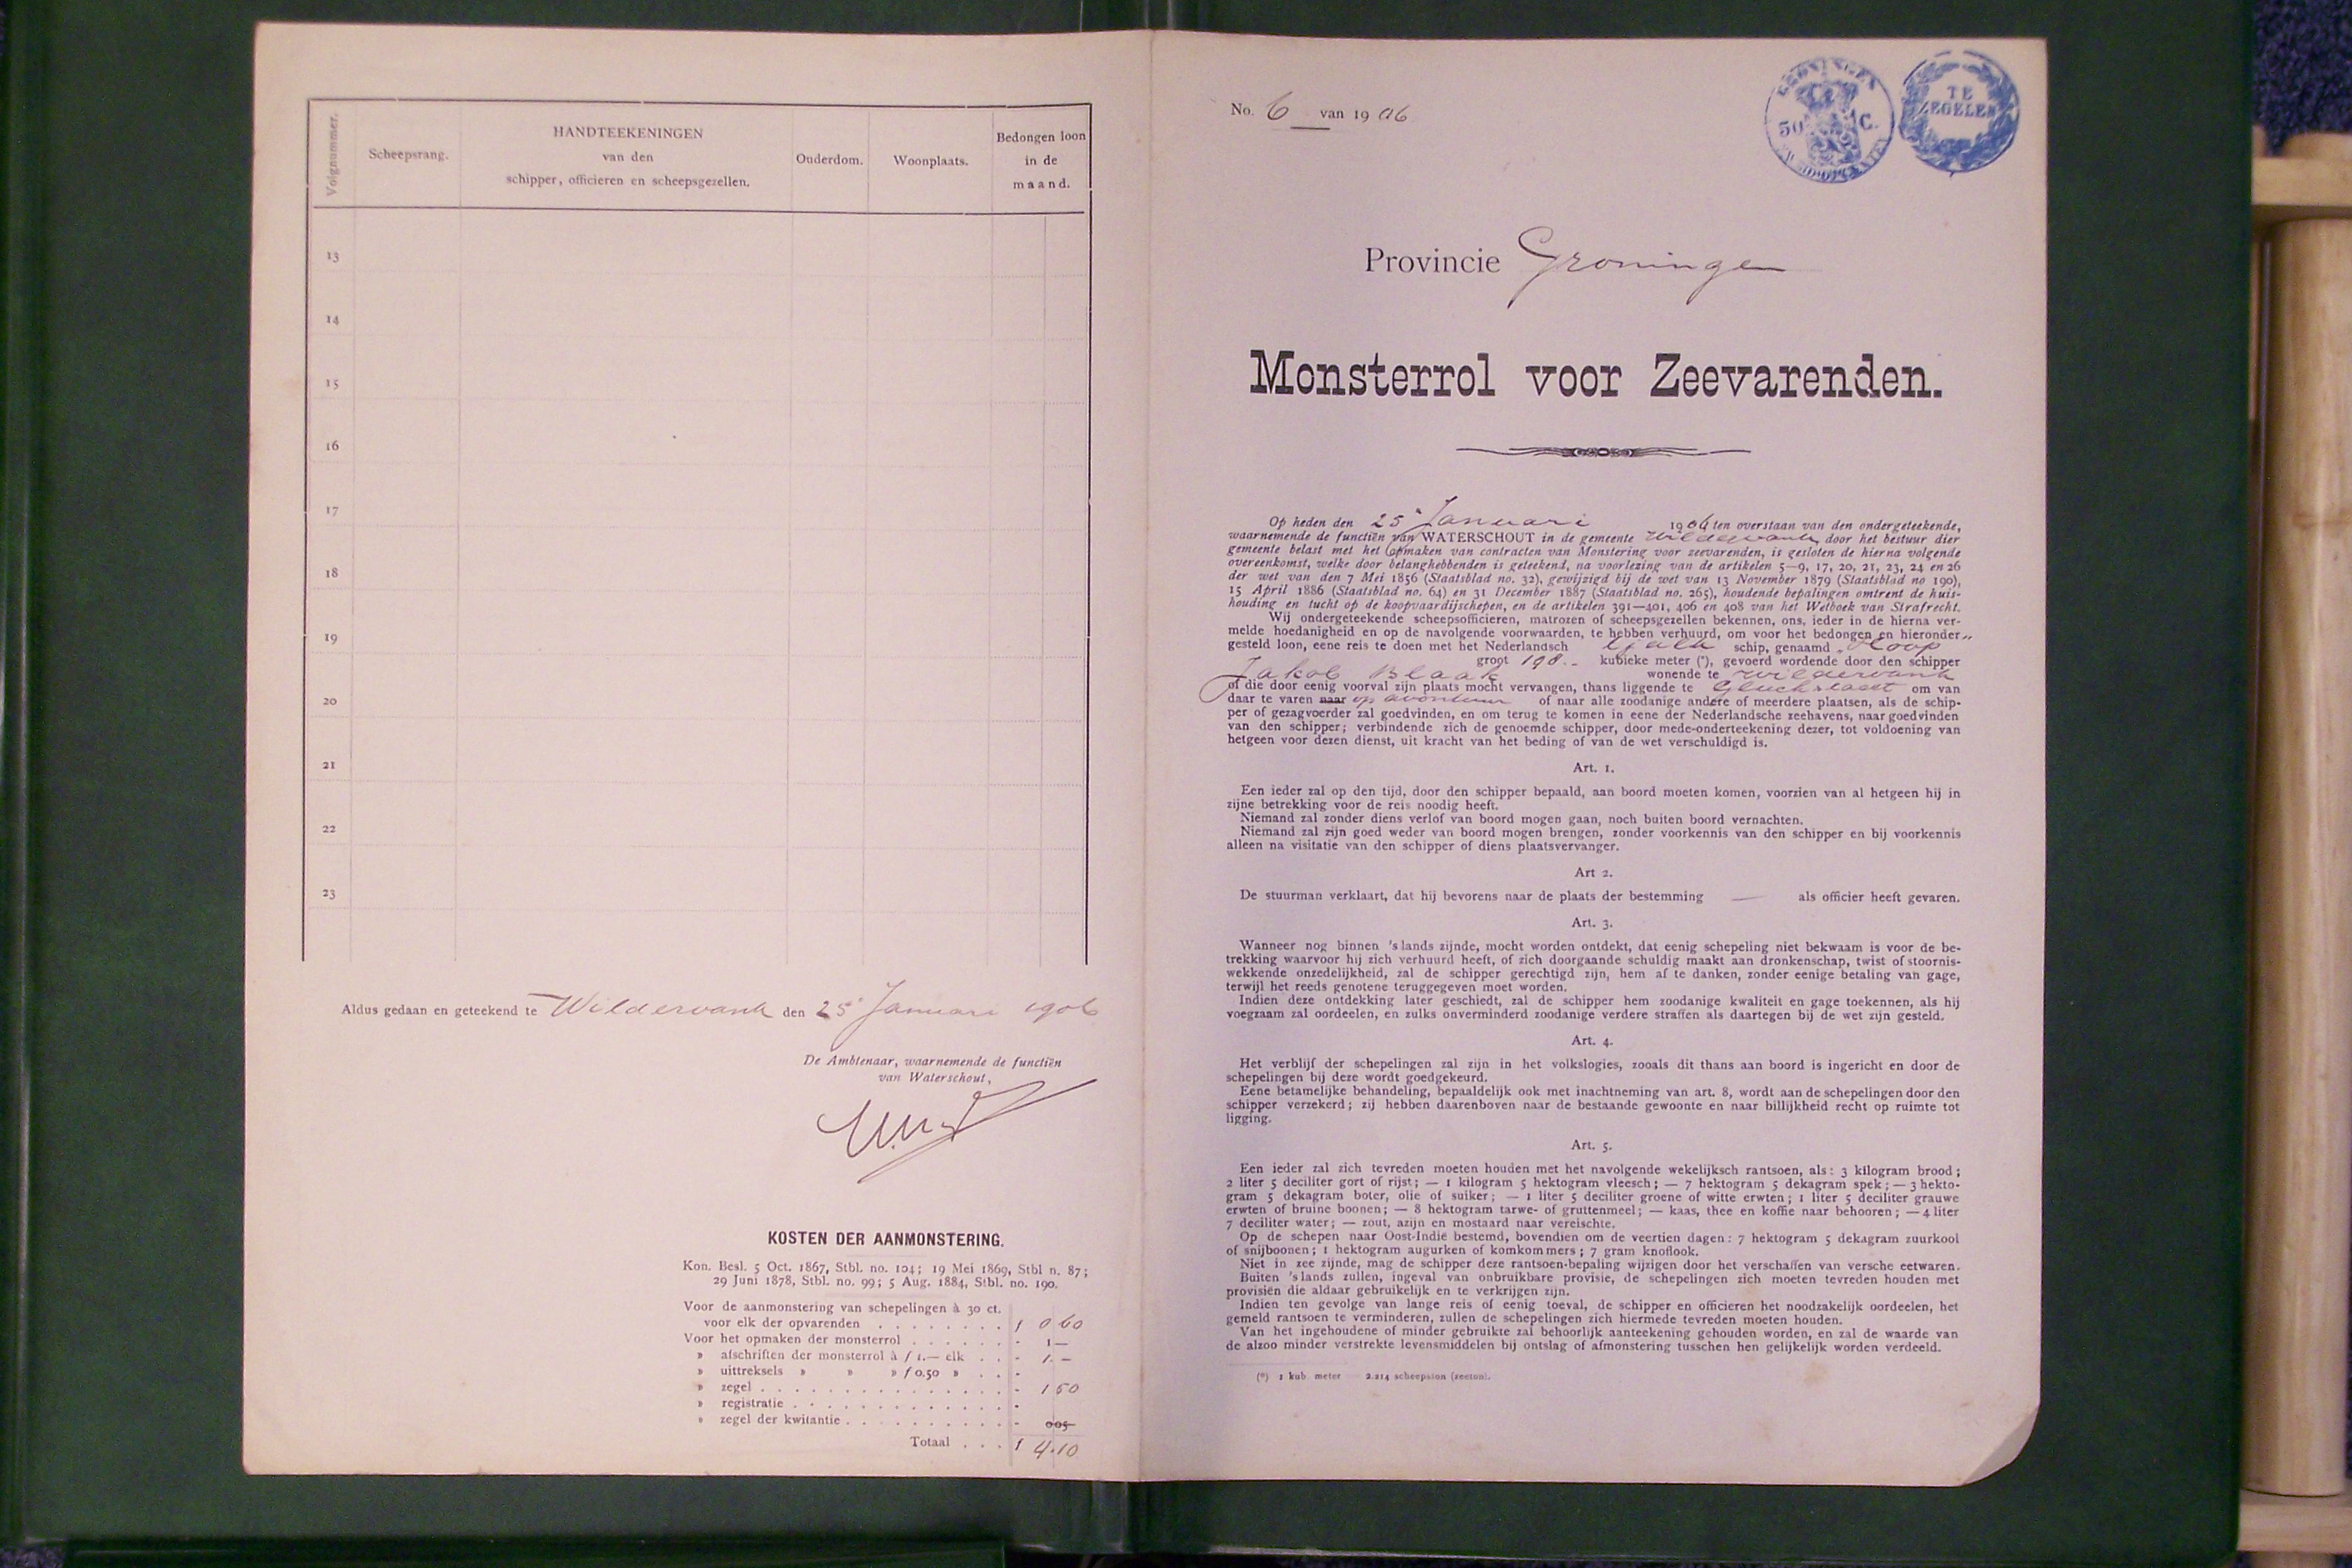 Volgnummer.
Scheepsrang.
HANDTEEKENINGEN
van den
schipper, officieren en scheepsgezellen.
Ouderdom.
Woonplaats.
Bedongen loon
in de
maand.
13
14
15
16
17
18
19
20
21
22
23
Aldus gedaan en geteekend te Wildervank den 25e Januari 1906
De Ambtenaar, waarnemende de functiën
van Waterschout,
KOSTEN DER AANMONSTERING.
Kon. Besl. 5 Oct. 1867, Stbl. no. 104; 19 Mei 1869, Stbl n. 87;
29 Juni 1878, Stbl. no. 99; 5 Aug. 1884, Stbl. no. 190.
Voor de aanmonstering van schepelingen à 30 ct.
voor elk der opvarenden . . . . . . . . f 0 60
Voor het opmaken der monsterrol . . . . . . - 1 —
» afschriften der monsterrol à f 1.— elk . . - 1. -
» uittreksels » » » f 0.50 » . . -
» zegel . . . . . . . . . . . . . . . - 1 50
» registratie . . . . . . . . . . . . . -
» zegel der kwitantie . . . . . . . . . . - 005
Totaal . . . f 4.10
No. 6 van 1906
GRONINGEN
50 C.
TE
ZEGELEN
Provincie Groningen
Monsterrol voor Zeevarenden.
Op heden den 25e Januari 1906 ten overstaan van den ondergeteekende,
waarnemende de functiën van WATERSCHOUT in de gemeente Wildervank door het bestuur dier
gemeente belast met het opmaken van contracten van Monstering voor zeevarenden, is gesloten de hierna volgende
overeenkomst, welke door belanghebbenden is geteekend, na voorlezing van de artikelen 5—9, 17, 20, 21, 23, 24 en 26
der wet van den 7 Mei 1856 (Staatsblad no. 32), gewijzigd bij de wet van 13 November 1879 (Staatsblad no 190),
15 April 1886 (Staatsblad no. 64) en 31 December 1887 (Staatsblad no. 265), houdende bepalingen omtrent de huis-
houding en tucht op de koopvaardijschepen, en de artikelen 391—401, 406 en 408 van het Wetboek van Strafrecht.
Wij ondergeteekende scheepsofficieren, matrozen of scheepsgezellen bekennen, ons, ieder in de hierna ver-
melde hoedanigheid en op de navolgende voorwaarden, te hebben verhuurd, om voor het bedongen en hieronder
gesteld loon, eene reis te doen met het Nederlandsch tjalk schip, genaamd „Hoop"
groot 198.- kubieke meter (*), gevoerd wordende door den schipper
Jakob Blaak wonende te Wildervank
of die door eenig voorval zijn plaats mocht vervangen, thans liggende te Glückstadt om van
daar te varen naar op avontuur of naar alle zoodanige andere of meerdere plaatsen, als de schip-
per of gezagvoerder zal goedvinden, en om terug te komen in eene der Nederlandsche zeehavens, naar goedvinden
van den schipper; verbindende zich de genoemde schipper, door mede-onderteekening dezer, tot voldoening van
hetgeen voor dezen dienst, uit kracht van het beding of van de wet verschuldigd is.
Art. 1.
Een ieder zal op den tijd, door den schipper bepaald, aan boord moeten komen, voorzien van al hetgeen hij in
zijne betrekking voor de reis noodig heeft.
Niemand zal zonder diens verlof van boord mogen gaan, noch buiten boord vernachten.
Niemand zal zijn goed weder van boord mogen brengen, zonder voorkennis van den schipper en bij voorkennis
alleen na visitatie van den schipper of diens plaatsvervanger.
Art 2.
De stuurman verklaart, dat hij bevorens naar de plaats der bestemming — als officier heeft gevaren.
Art. 3.
Wanneer nog binnen 's lands zijnde, mocht worden ontdekt, dat eenig schepeling niet bekwaam is voor de be-
trekking waarvoor hij zich verhuurd heeft, of zich doorgaande schuldig maakt aan dronkenschap, twist of stoornis-
wekkende onzedelijkheid, zal de schipper gerechtigd zijn, hem af te danken, zonder eenige betaling van gage,
terwijl het reeds genotene teruggegeven moet worden.
Indien deze ontdekking later geschiedt, zal de schipper hem zoodanige kwaliteit en gage toekennen, als hij
voegzaam zal oordeelen, en zulks onverminderd zoodanige verdere straffen als daartegen bij de wet zijn gesteld.
Art. 4.
Het verblijf der schepelingen zal zijn in het volkslogies, zooals dit thans aan boord is ingericht en door de
schepelingen bij deze wordt goedgekeurd.
Eene betamelijke behandeling, bepaaldelijk ook met inachtneming van art. 8, wordt aan de schepelingen door den
schipper verzekerd; zij hebben daarenboven naar de bestaande gewoonte en naar billijkheid recht op ruimte tot
ligging.
Art. 5.
Een ieder zal zich tevreden moeten houden met het navolgende wekelijksch rantsoen, als: 3 kilogram brood;
2 liter 5 deciliter gort of rijst; — 1 kilogram 5 hektogram vleesch; — 7 hektogram 5 dekagram spek; — 3 hekto-
gram 5 dekagram boter, olie of suiker; — 1 liter 5 deciliter groene of witte erwten; 1 liter 5 deciliter grauwe
erwten of bruine boonen; — 8 hektogram tarwe- of gruttenmeel; — kaas, thee en koffie naar behooren; — 4 liter
7 deciliter water; — zout, azijn en mostaard naar vereischte.
Op de schepen naar Oost-Indië bestemd, bovendien om de veertien dagen: 7 hektogram 5 dekagram zuurkool
of snijboonen; 1 hektogram augurken of komkommers; 7 gram knoflook.
Niet in zee zijnde, mag de schipper deze rantsoen-bepaling wijzigen door het verschaffen van versche eetwaren.
Buiten 's lands zullen, ingeval van onbruikbare provisie, de schepelingen zich moeten tevreden houden met
provisiën die aldaar gebruikelijk en te verkrijgen zijn.
Indien ten gevolge van lange reis of eenig toeval, de schipper en officieren het noodzakelijk oordeelen, het
gemeld rantsoen te verminderen, zullen de schepelingen zich hiermede tevreden moeten houden.
Van het ingehoudene of minder gebruikte zal behoorlijk aanteekening gehouden worden, en zal de waarde van
de alzoo minder verstrekte levensmiddelen bij ontslag of afmonstering tusschen hen gelijkelijk worden verdeeld.
(*) 1 kub meter 2.214 scheepston (zeeton).